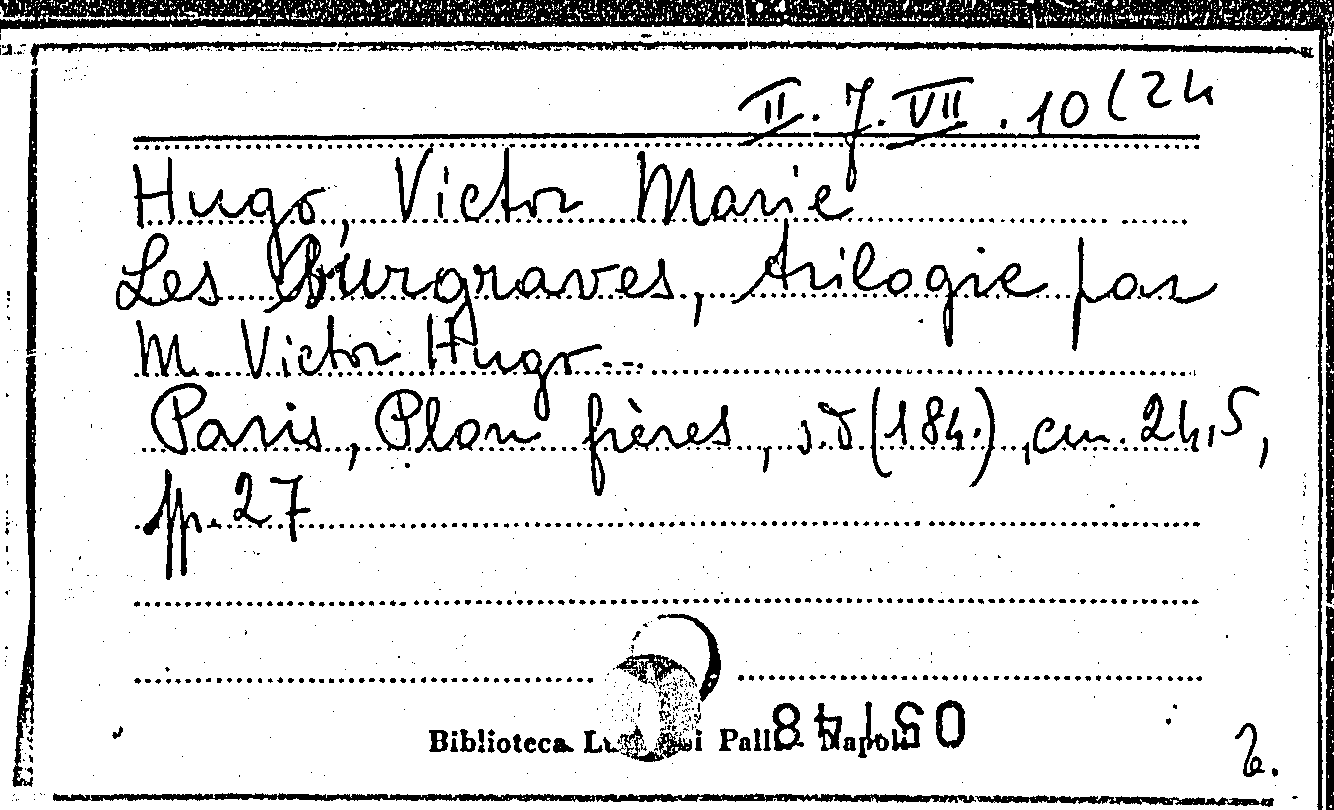 II. J. VII. 10 (24
Hugo, Victor Marie
Les Burgraves, trilogie par
M. Victor Hugo...
Paris, Plon frères, s.d (184.), cm. 24,5,
pp. 27
Biblioteca Napoli